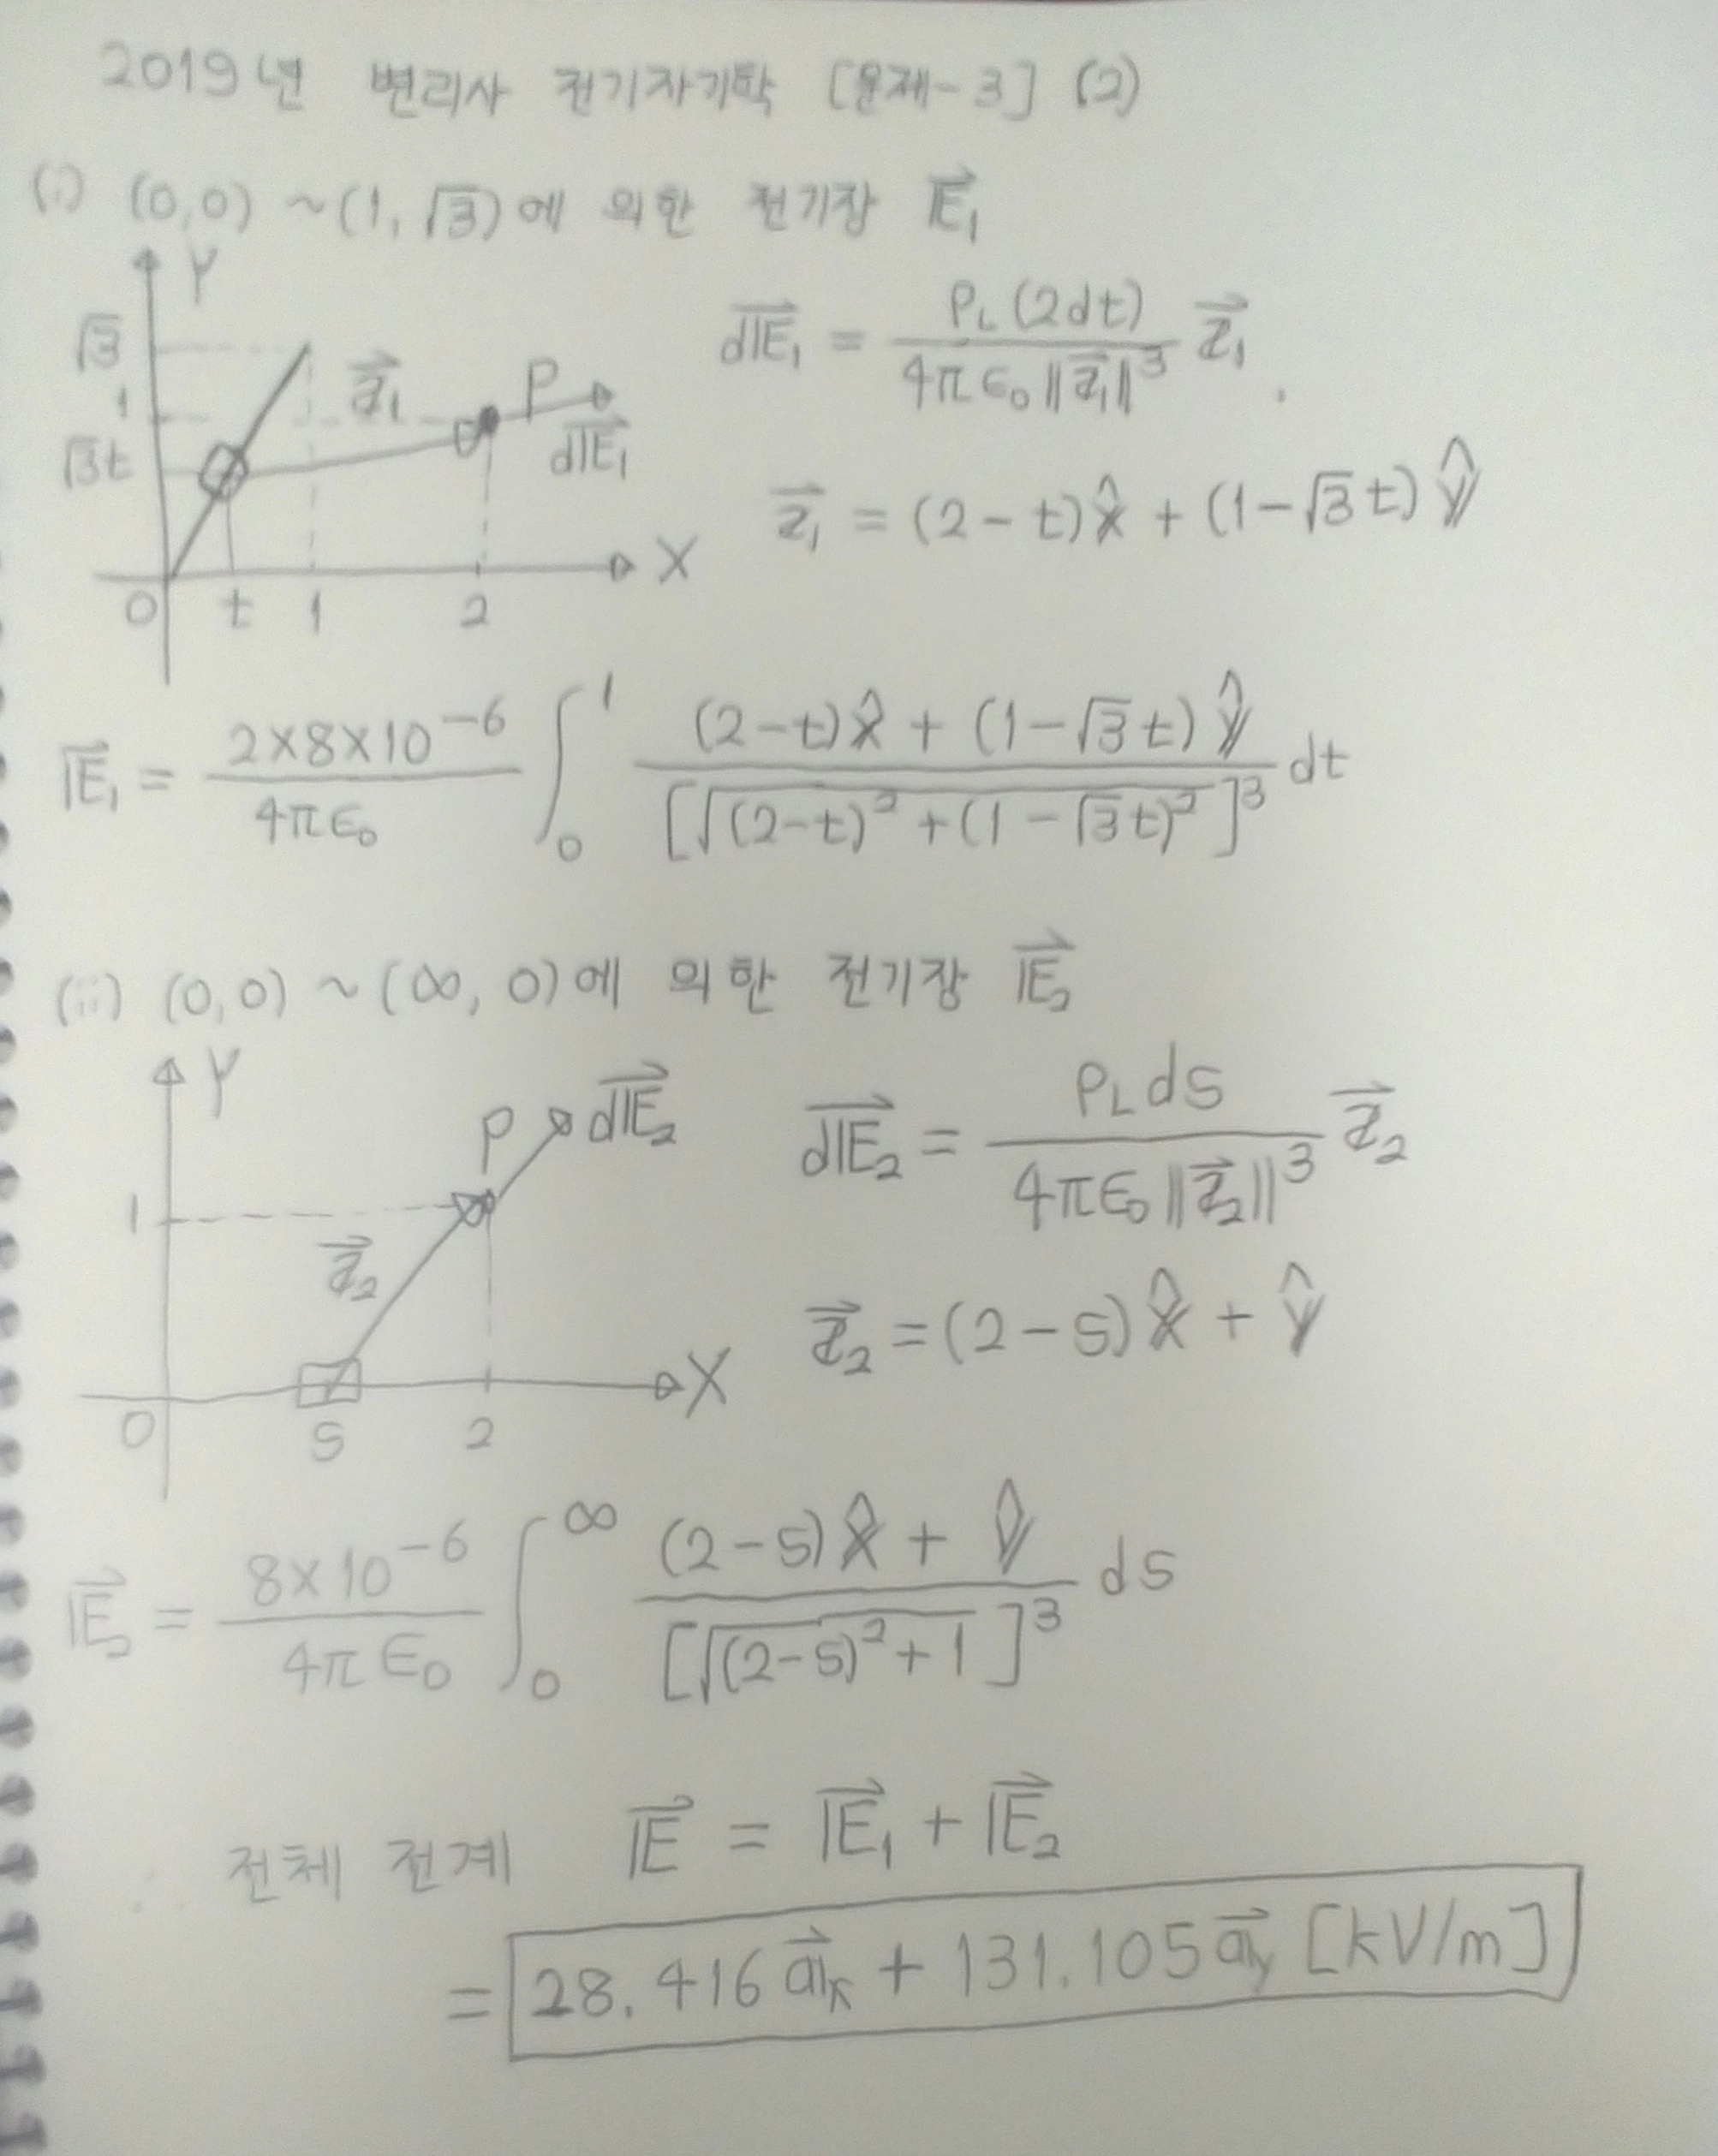 2019년 변리사 전기자기학 [문제-3] (2)
(i) (0,0) ~ (1, √3)에 의한 전기장 E⃗₁
Y
√3
1
√3t
z⃗₁
P
dE⃗₁
X
0 t 1 2
dE⃗₁ = ρL(2dt) / 4πε₀‖z⃗₁‖³ z⃗₁
z⃗₁ = (2-t)x̂ + (1-√3t)ŷ
E⃗₁ = 2×8×10⁻⁶ / 4πε₀ ∫₀¹ (2-t)x̂ + (1-√3t)ŷ / [√((2-t)²+(1-√3t)²)]³ dt
(ii) (0,0) ~ (∞, 0)에 의한 전기장 E⃗₂
Y
P dE⃗₂
1
z⃗₂
X
0 s 2
dE⃗₂ = ρL ds / 4πε₀‖z⃗₂‖³ z⃗₂
z⃗₂ = (2-s)x̂ + ŷ
E⃗₂ = 8×10⁻⁶ / 4πε₀ ∫₀^∞ (2-s)x̂ + ŷ / [√((2-s)²+1)]³ ds
∴ 전체 전계 E⃗ = E⃗₁ + E⃗₂
= 28.416 a⃗x + 131.105 a⃗y [kV/m]